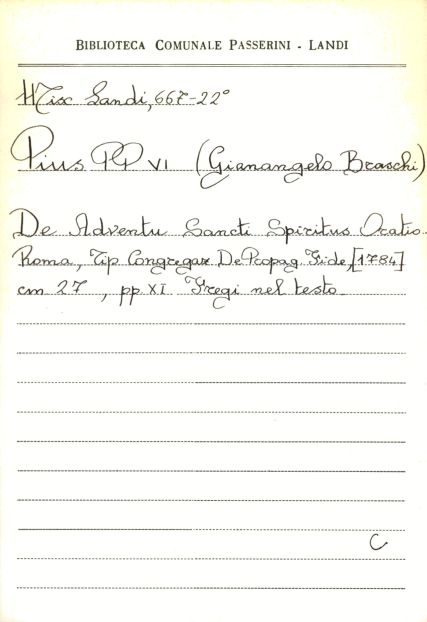 BIBLIOTECA COMUNALE PASSERINI - LANDI
Misc Landi, 667-22°
Pius PP VI (Gianangelo Braschi)
De Adventu Sancti Spiritus Oratio.
Roma, Tip Congregaz De Propag. Fide, [1784]
cm 27 , pp XI Fregi nel testo
C